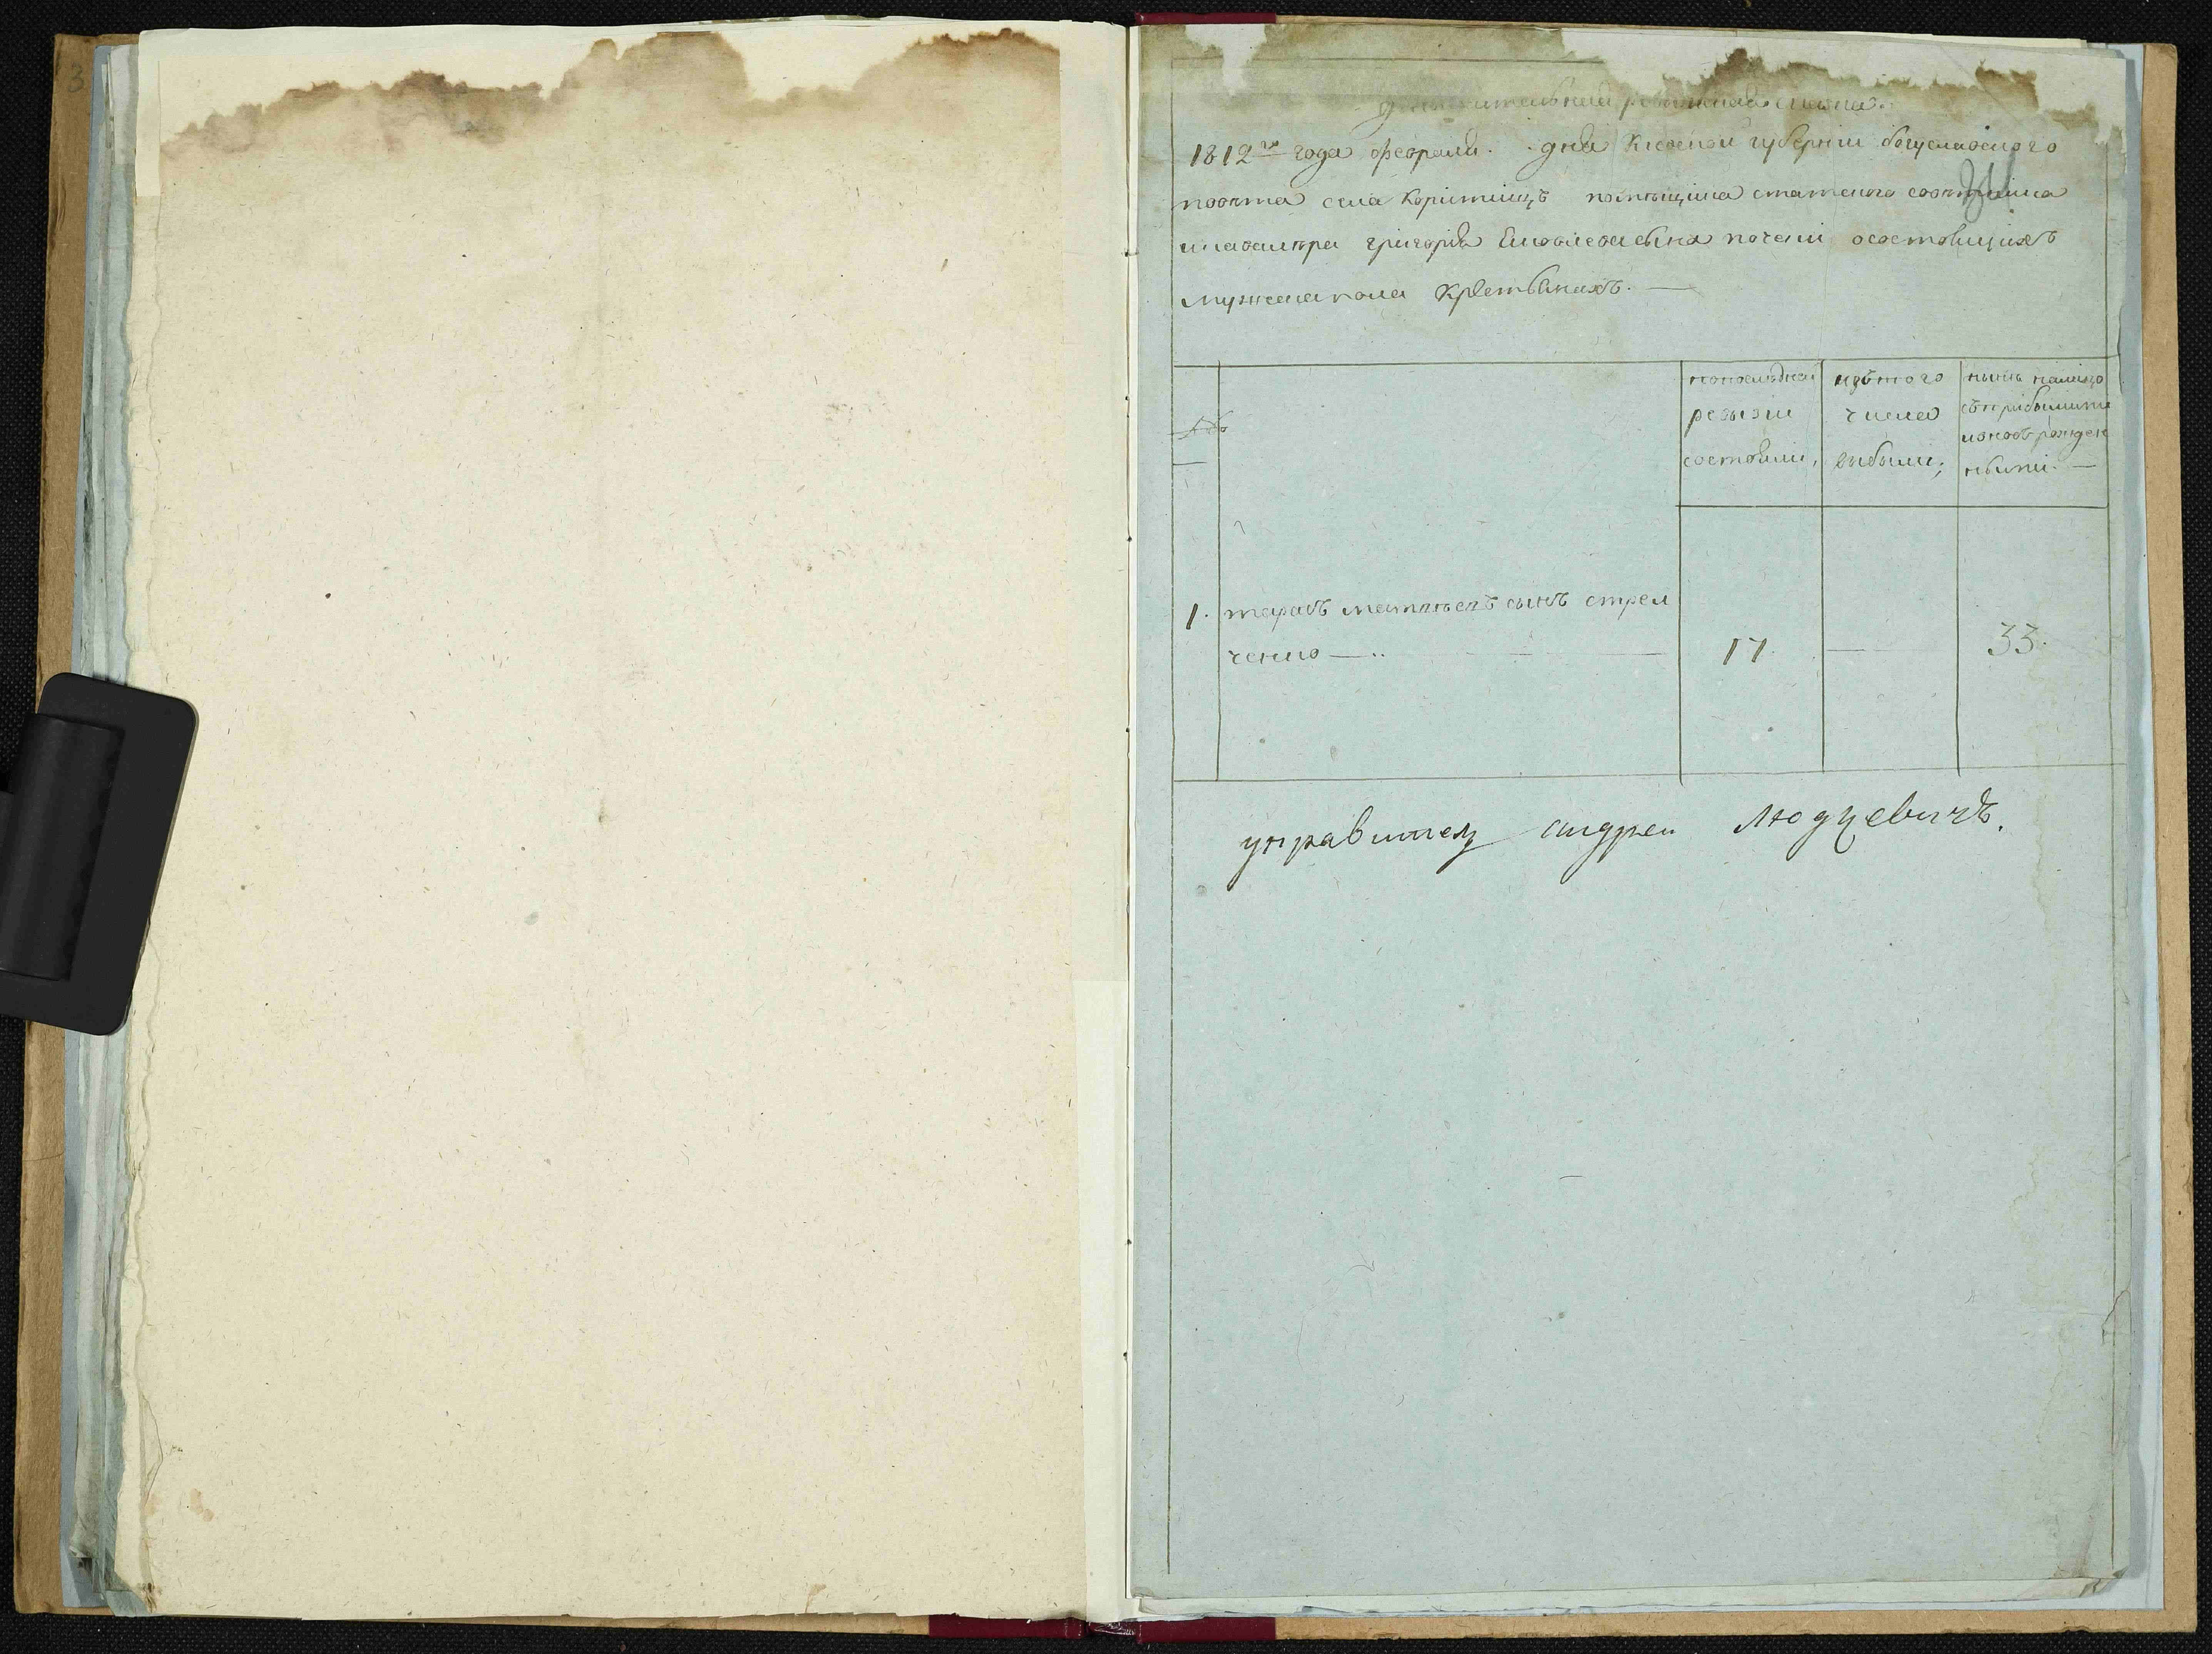 3
ревизская сказка.
1812го года февраля. дня Киевской губернии богуславского
повѣта села Коритищъ помѣщика статского совѣтника
икавалѣра григория сина почеш осостоящихъ
мужеска пола Крестьянахъ. —
№
попослѣдней
ревизии
состояли,
изътого
числа
выбыли;
нынѣ налицо
съприбылыми
иновърожден
ными. —
1. тарасъ матвѣевъ сынъ стрел
ченко — 17. — 33.
управитель андрей Людцевичъ.